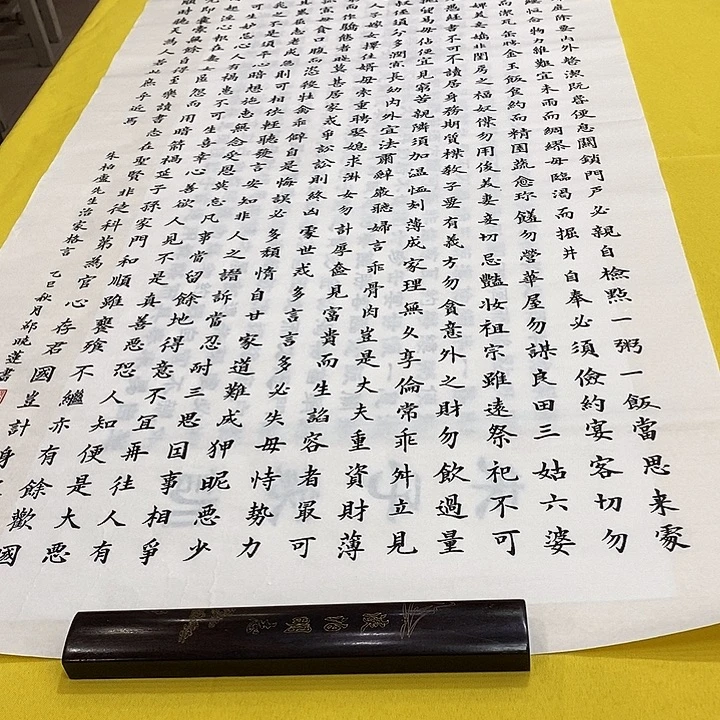 庭除要內外整潔既昏便息關鎖門戶必親自檢點一粥一飯當思来處
恒念物力維艱宜未雨而綢繆毋臨渴而掘井自奉必須儉約宴客切勿
而潔瓦缶勝金玉飲食約而精園蔬愈珍饈勿營華屋勿謀良田三姑六婆
婢美妾嬌非閨房之福奴僕勿用俊美妻妾切忌艷妝祖宗雖遠祭祀不可
愚經書不可不讀居身務期質樸教子要有義方勿貪意外之財勿飲過量
挑貿易毋佔便宜見窮苦親鄰須加溫恤刻薄成家理無久享倫常乖舛立見
叔侄須分多潤寡長幼內外宜法肅辭嚴聽婦言乖骨肉豈是大丈夫重資財薄
人子嫁女擇佳婿毋索重聘娶媳求淑女勿計厚奩見富貴而生諂容者最可
而作驕態者賤莫甚居家戒爭訟訟則終凶處世戒多言言多必失毋恃勢力
孤寡毋貪口腹而恣殺牲禽乖僻自是悔誤必多頹惰自甘家道難成狎昵惡少
屈志老成急則可相依輕聽發言安知非人之譖訴當忍耐三思因事相爭
我之不是須平心暗想施惠無念受恩莫忘凡事當留餘地得意不宜再往人有
可生妒忌心人有禍患不可生喜幸心善欲人見不是真善惡恐人知便是大惡
起淫心報在妻女匿怨而用暗箭禍延子孫家門和順雖饔飧不繼亦有餘歡國
完即囊橐無餘自得至樂讀書志在聖賢非徒科第為官心存君國豈計身
順時聽天為人若此庶乎近焉
朱柏廬先生治家格言
乙巳秋月邱曉蓮書
淡泊明志